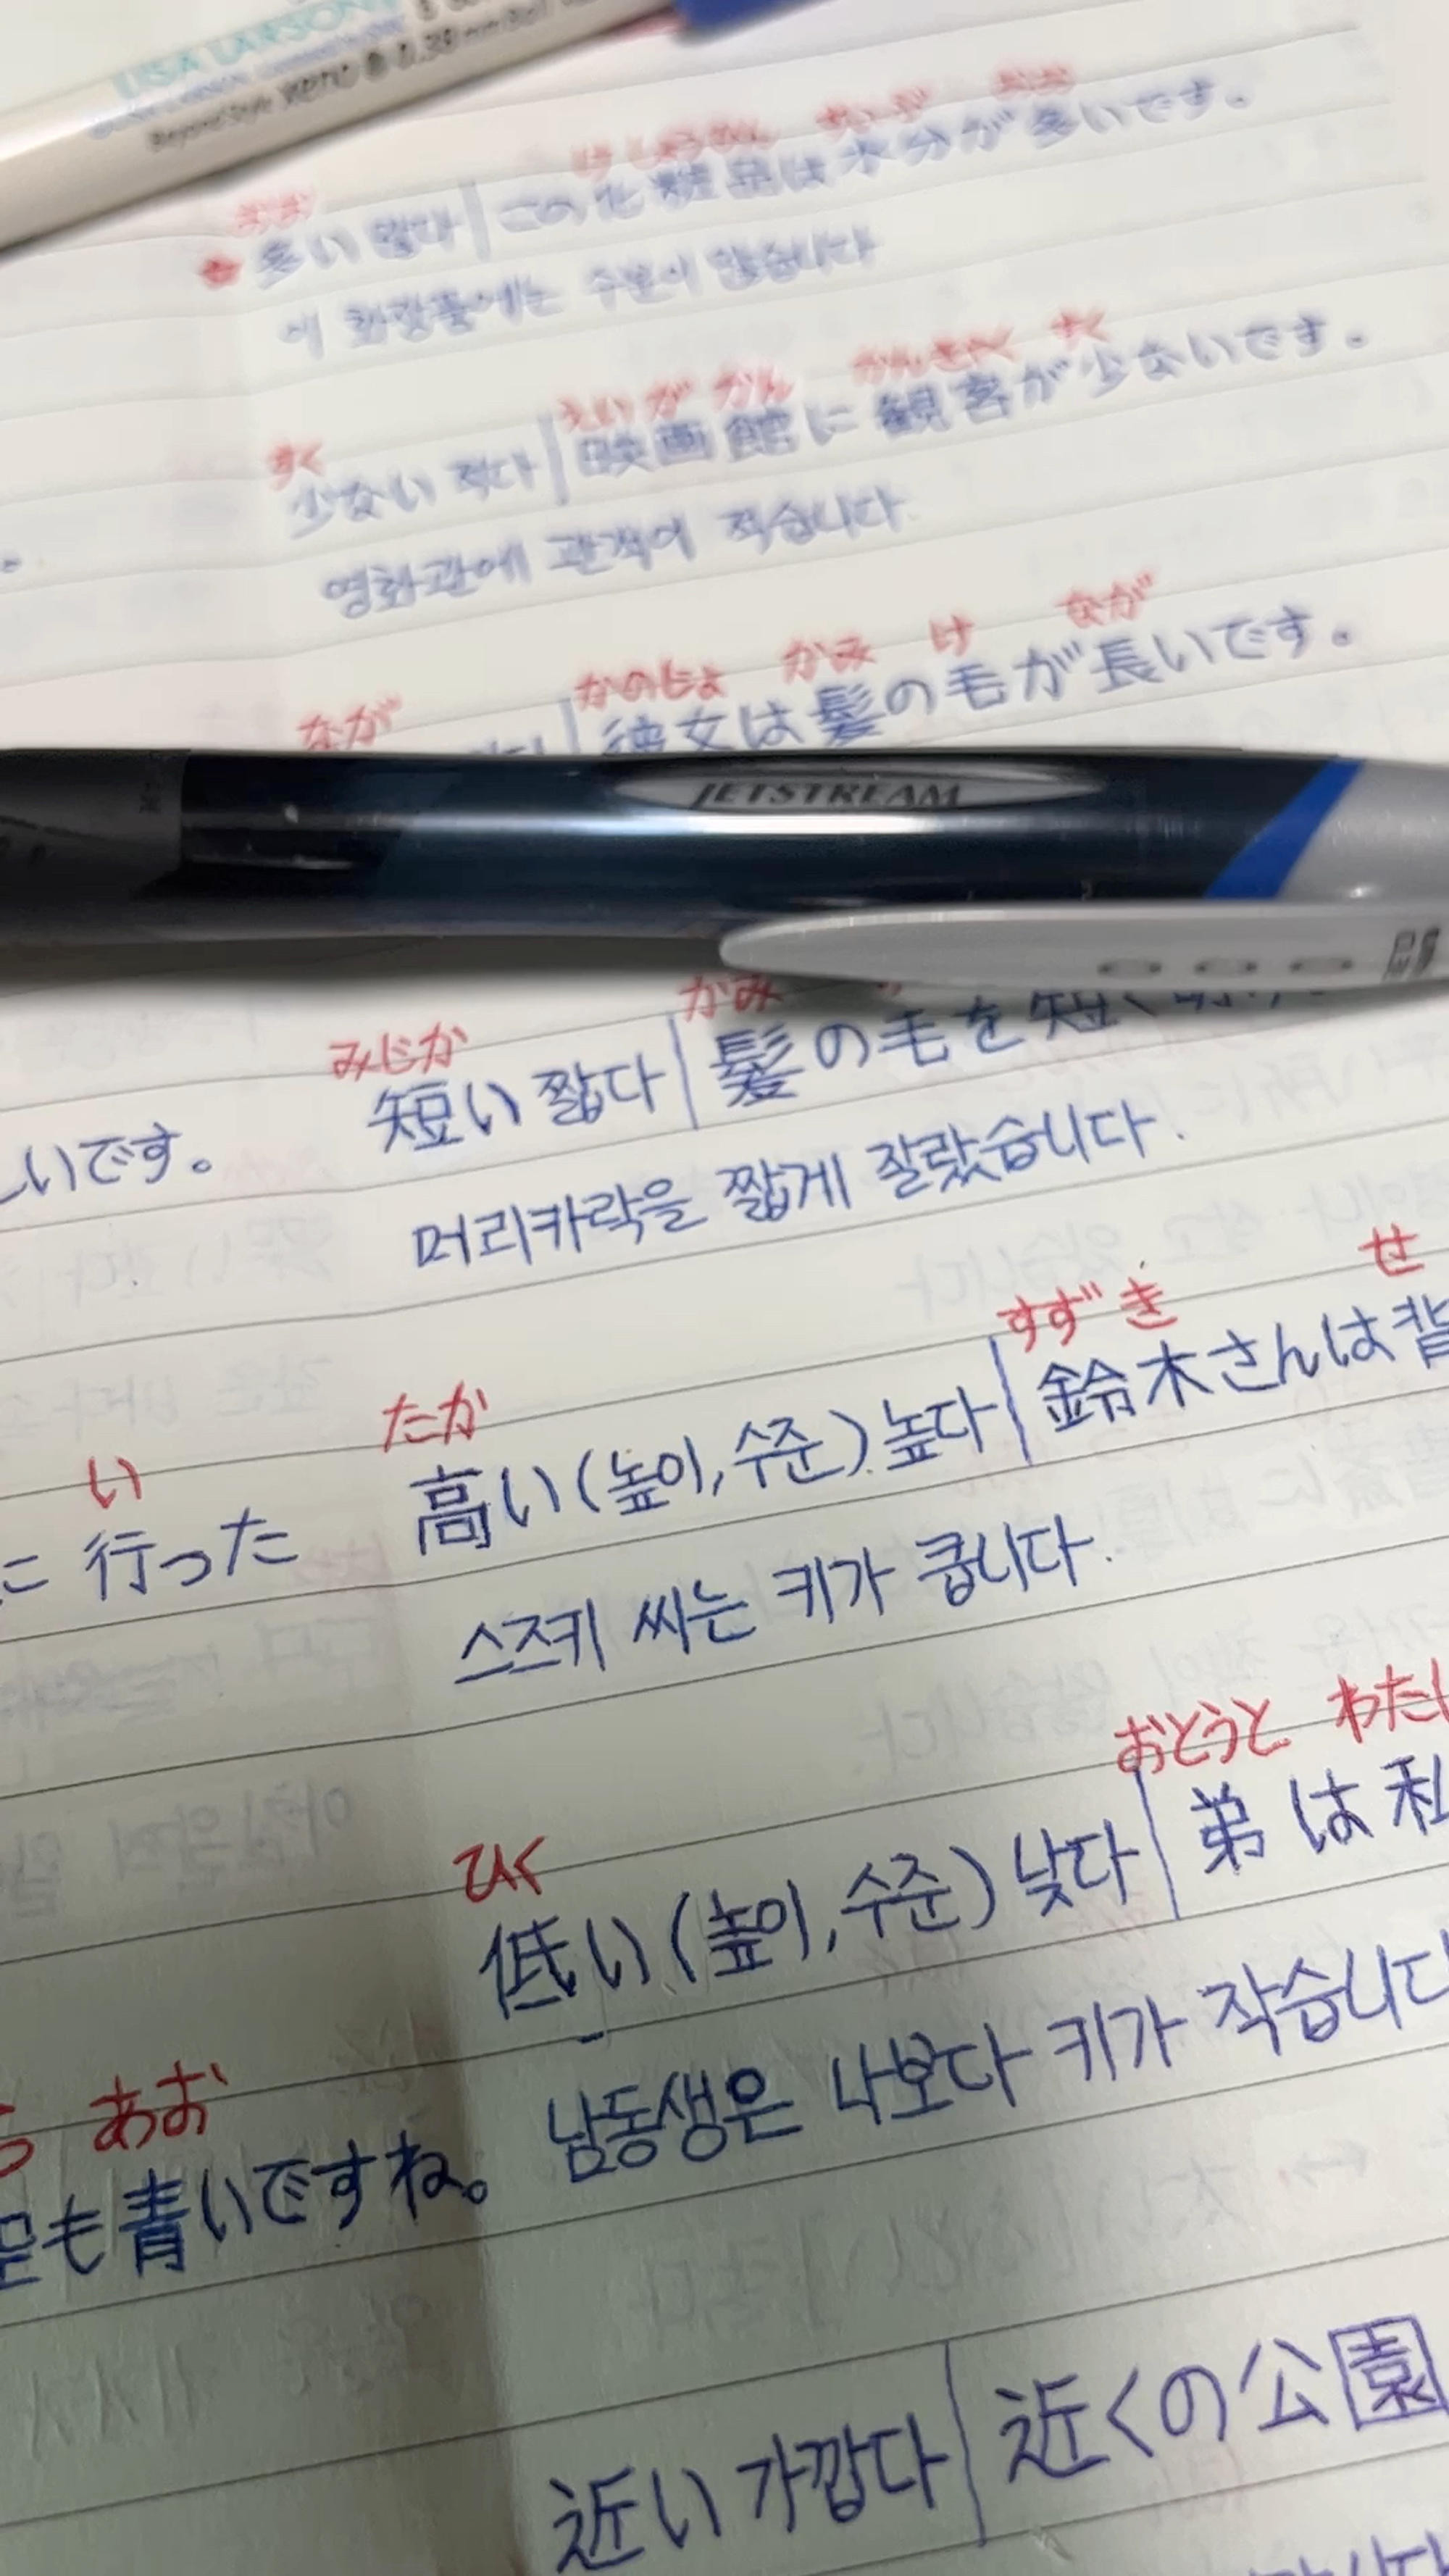 LISA LARSON
BeyondStyle 0.38mm
けしょうひん すいぶん おお
おお
多い 많다 | この化粧品は水分が多いです。
이 화장품에는 수분이 많습니다
えいがかん かんきゃく すく
すく
少ない 적다 | 映画館に観客が少ないです。
영화관에 관객이 적습니다.
かのじょ かみ け なが
なが
彼女は髪の毛が長いです。
JETSTREAM
かみ
みじか
短い 짧다 | 髪の毛を短く
しいです。
머리카락을 짧게 잘랐습니다.
すずき せ
たか
高い(높이, 수준) 높다 | 鈴木さんは背
い
に 行った
스즈키 씨는 키가 큽니다.
おとうと わたし
ひく
低い(높이, 수준) 낮다 | 弟は私
남동생은 나보다 키가 작습니다
あお
も青いですね。
近い 가깝다 | 近くの公園